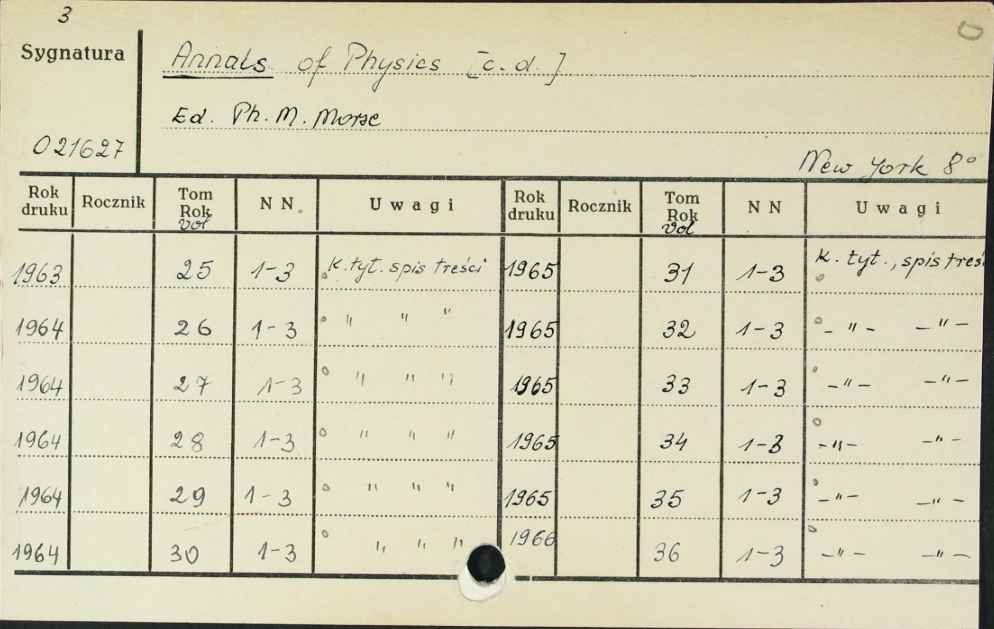 3
Sygnatura
Annals of Physics [c.d.]
Ed. Ph. M. Morse
021627
New York 8°
Rok druku Rocznik Tom Rok Vol N N. Uwagi Rok druku Rocznik Tom Rok Vol N N Uwagi
1963 25 1-3 k. tyt. spis treści 1965 31 1-3 k. tyt., spis treści
1964 26 1-3 " " " 1965 32 1-3 -"- -"-
1964 27 1-3 " " " 1965 33 1-3 -"- -"-
1964 28 1-3 " " " 1965 34 1-3 -"- -"-
1964 29 1-3 " " " 1965 35 1-3 -"- -"-
1964 30 1-3 " " " 1966 36 1-3 -"- -"-